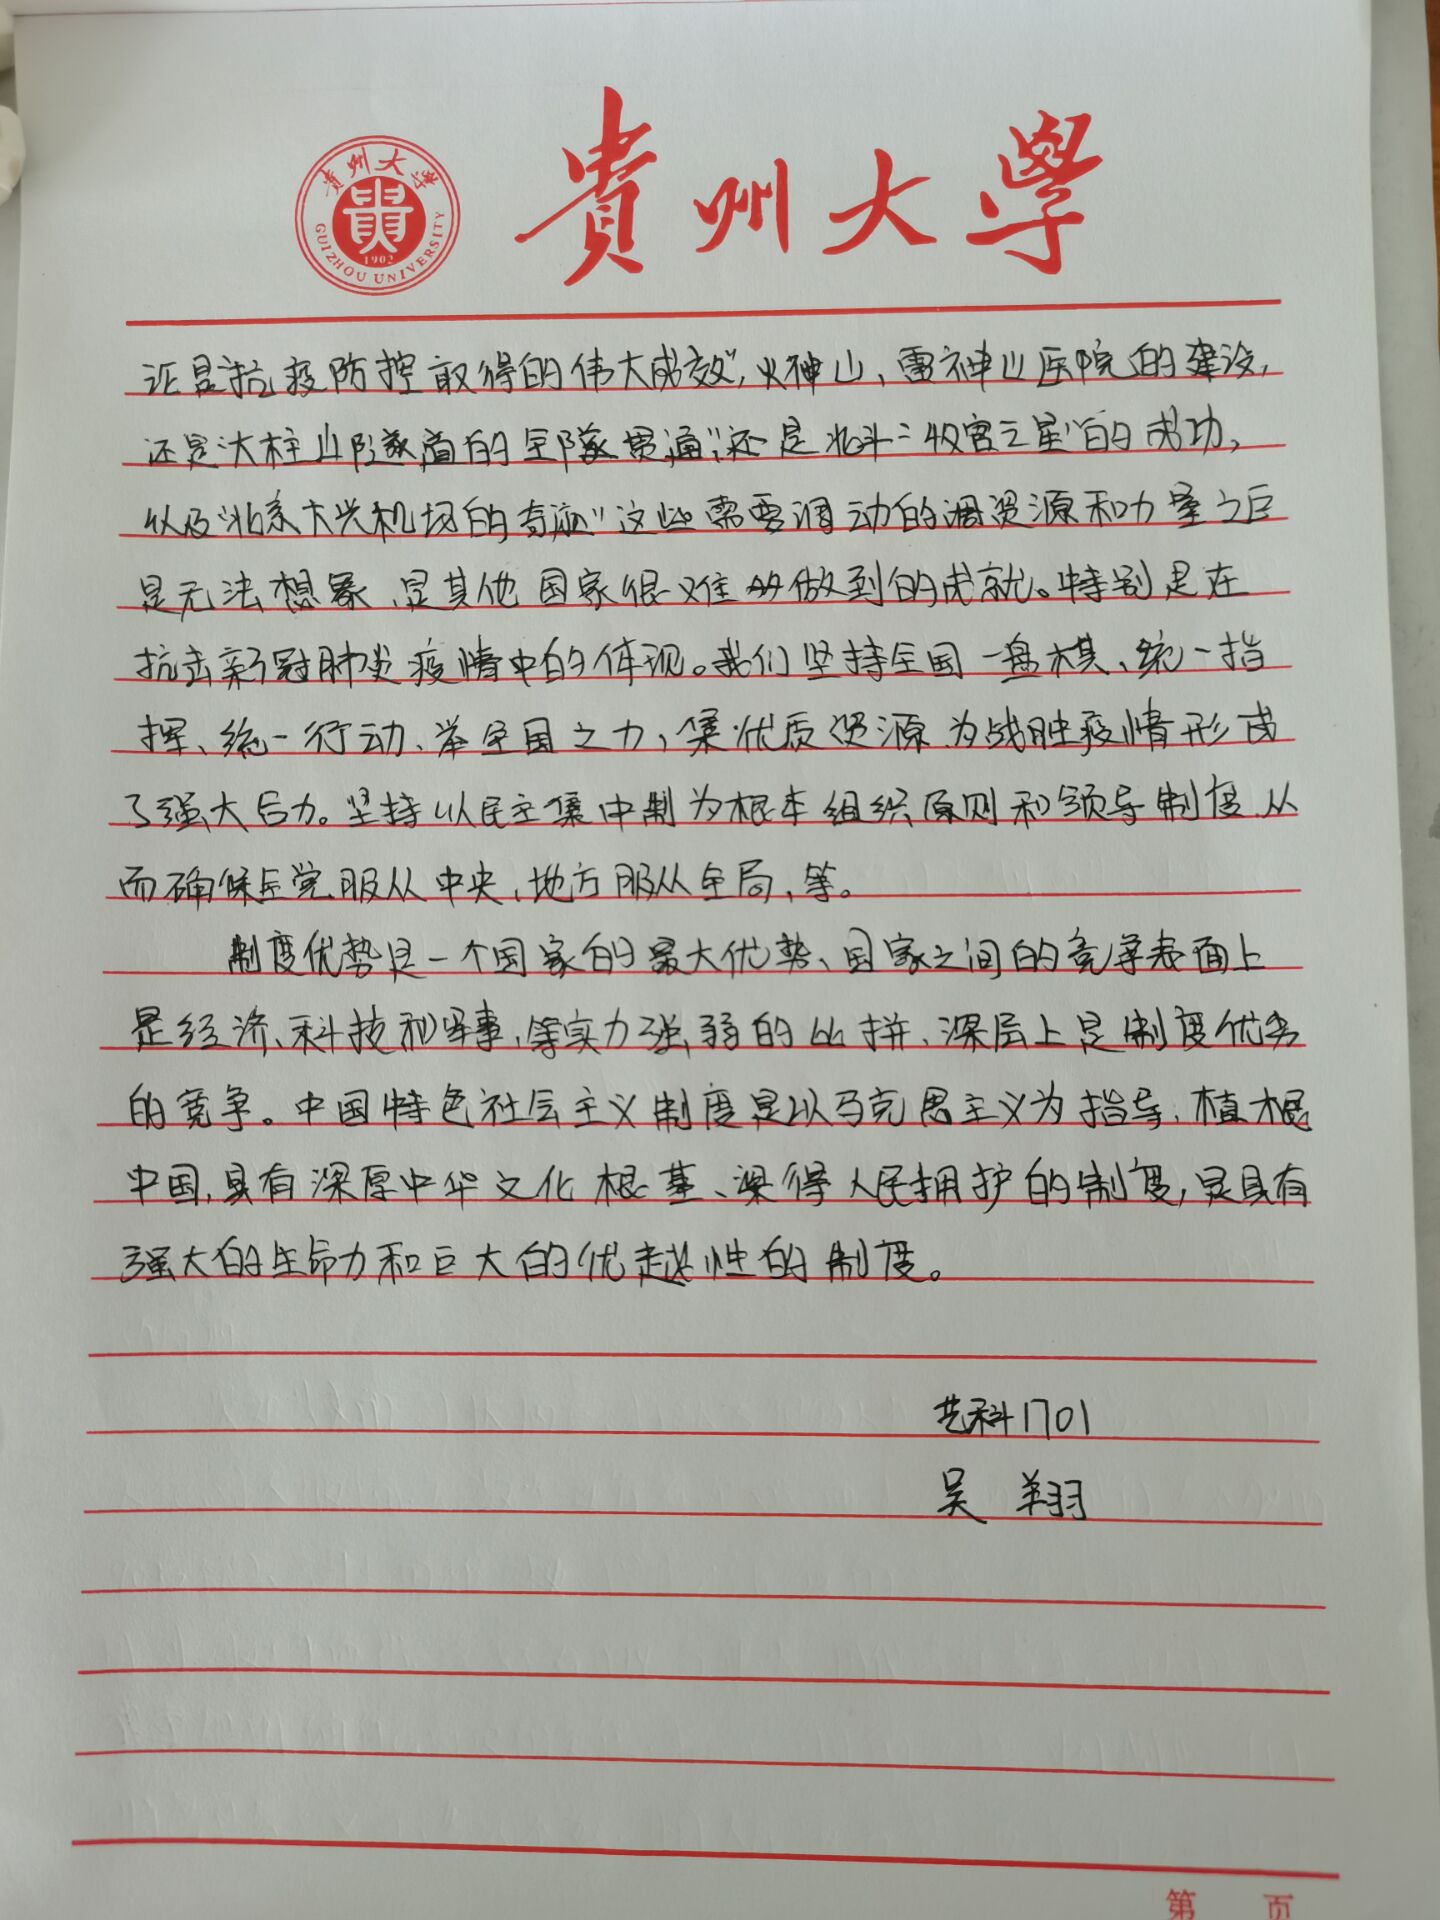 貴州大學
貴州大學
貴
1902
GUIZHOU UNIVERSITY
还是抗疫防控取得的伟大成效”,火神山、雷神山医院的建设,
还是大柱山隧道的全隧贯通”,还是北斗三收官之星”的成功,
以及“北京大兴机场的奇迹”这些需要调动的调资源和力量之巨
是无法想象、是其他国家很难做到的成就。特别是在
抗击新冠肺炎疫情中的体现。我们坚持全国一盘棋、统一指
挥、统一行动、举全国之力,集优质资源为战胜疫情形成
了强大后力。坚持以民主集中制为根本组织原则和领导制度、从
而确保全党服从中央,地方服从全局,等。
制度优势是一个国家的最大优势、国家之间的竞争表面上
是经济、科技和军事,等实力强弱的比拼、深层上是制度优势
的竞争。中国特色社会主义制度是以马克思主义为指导,植根
中国,具有深厚中华文化根基、深得人民拥护的制度,是具有
强大的生命力和巨大的优越性的制度。
艺科1701
吴 翔
第 页